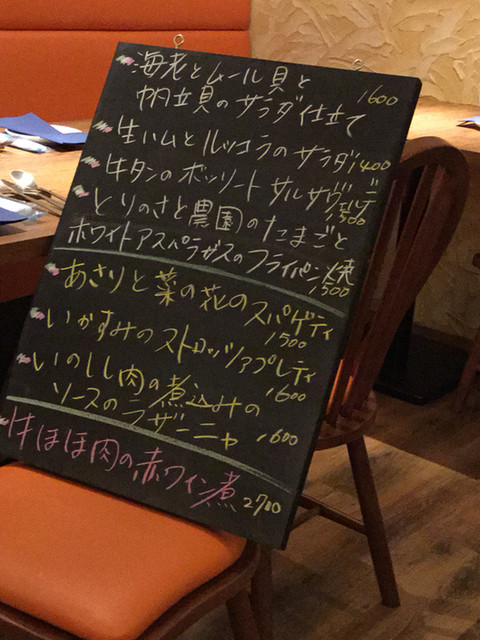 海老とムール貝と
帆立貝のサラダ仕立て 1600
生ハムとルッコラのサラダ 1400
牛タンのボッリート サルサヴェルデ
1500
とりのさと農園のたまごと
ホワイトアスパラガスのフライパン焼
1500
あさりと菜の花のスパゲティ
1500
いかすみのストロッツァプレティ
1600
いのしし肉の煮込みの
ソースのラザーニャ 1600
牛ほほ肉の赤ワイン煮 2700